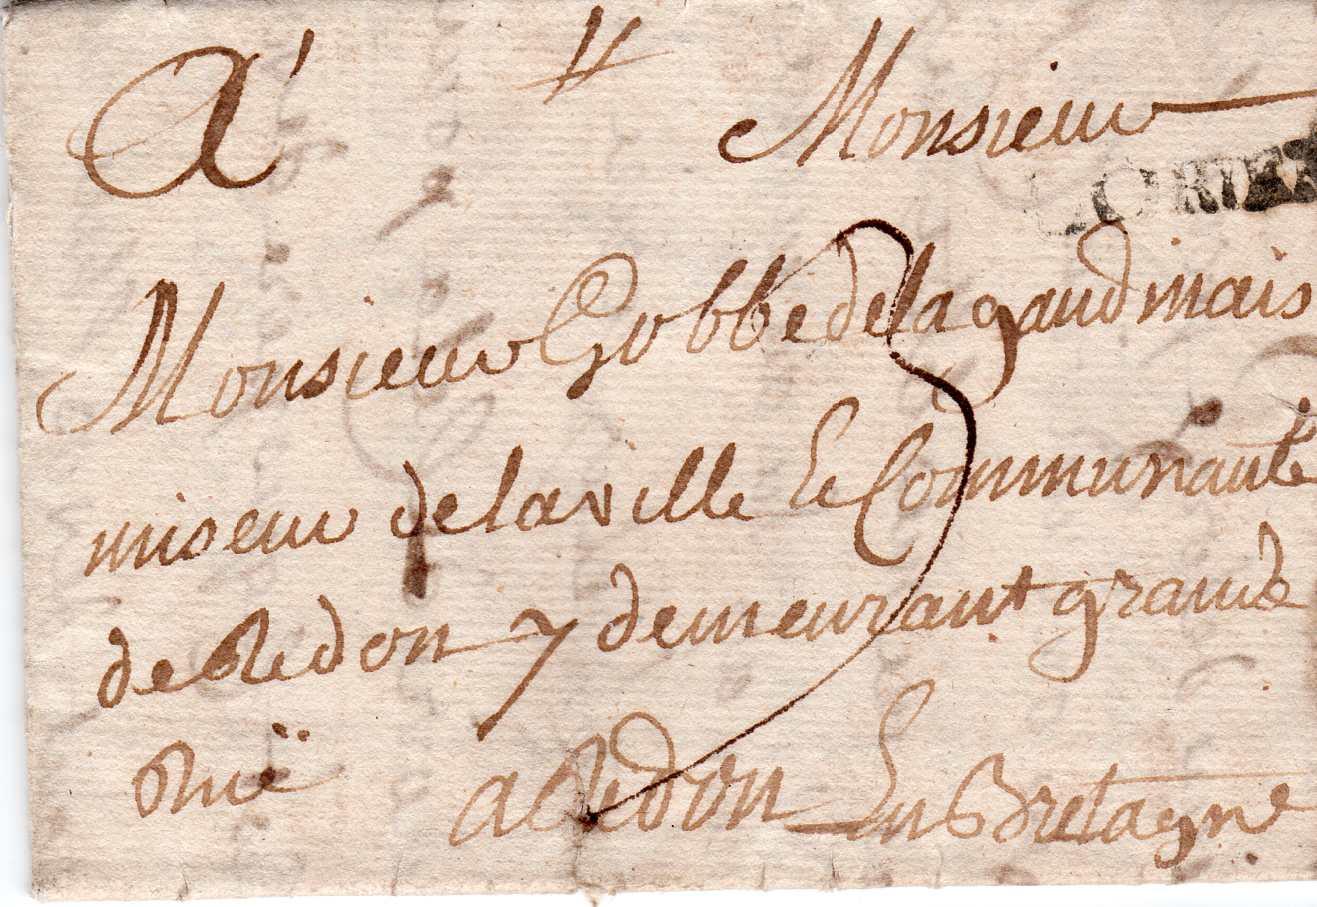 A Monsieur
LORIENT
Monsieur Gobbe de la gaudmais
miseur de la ville Et Communauté
de Redon y demeurant grande
Ruë
a Redon En Bretagne